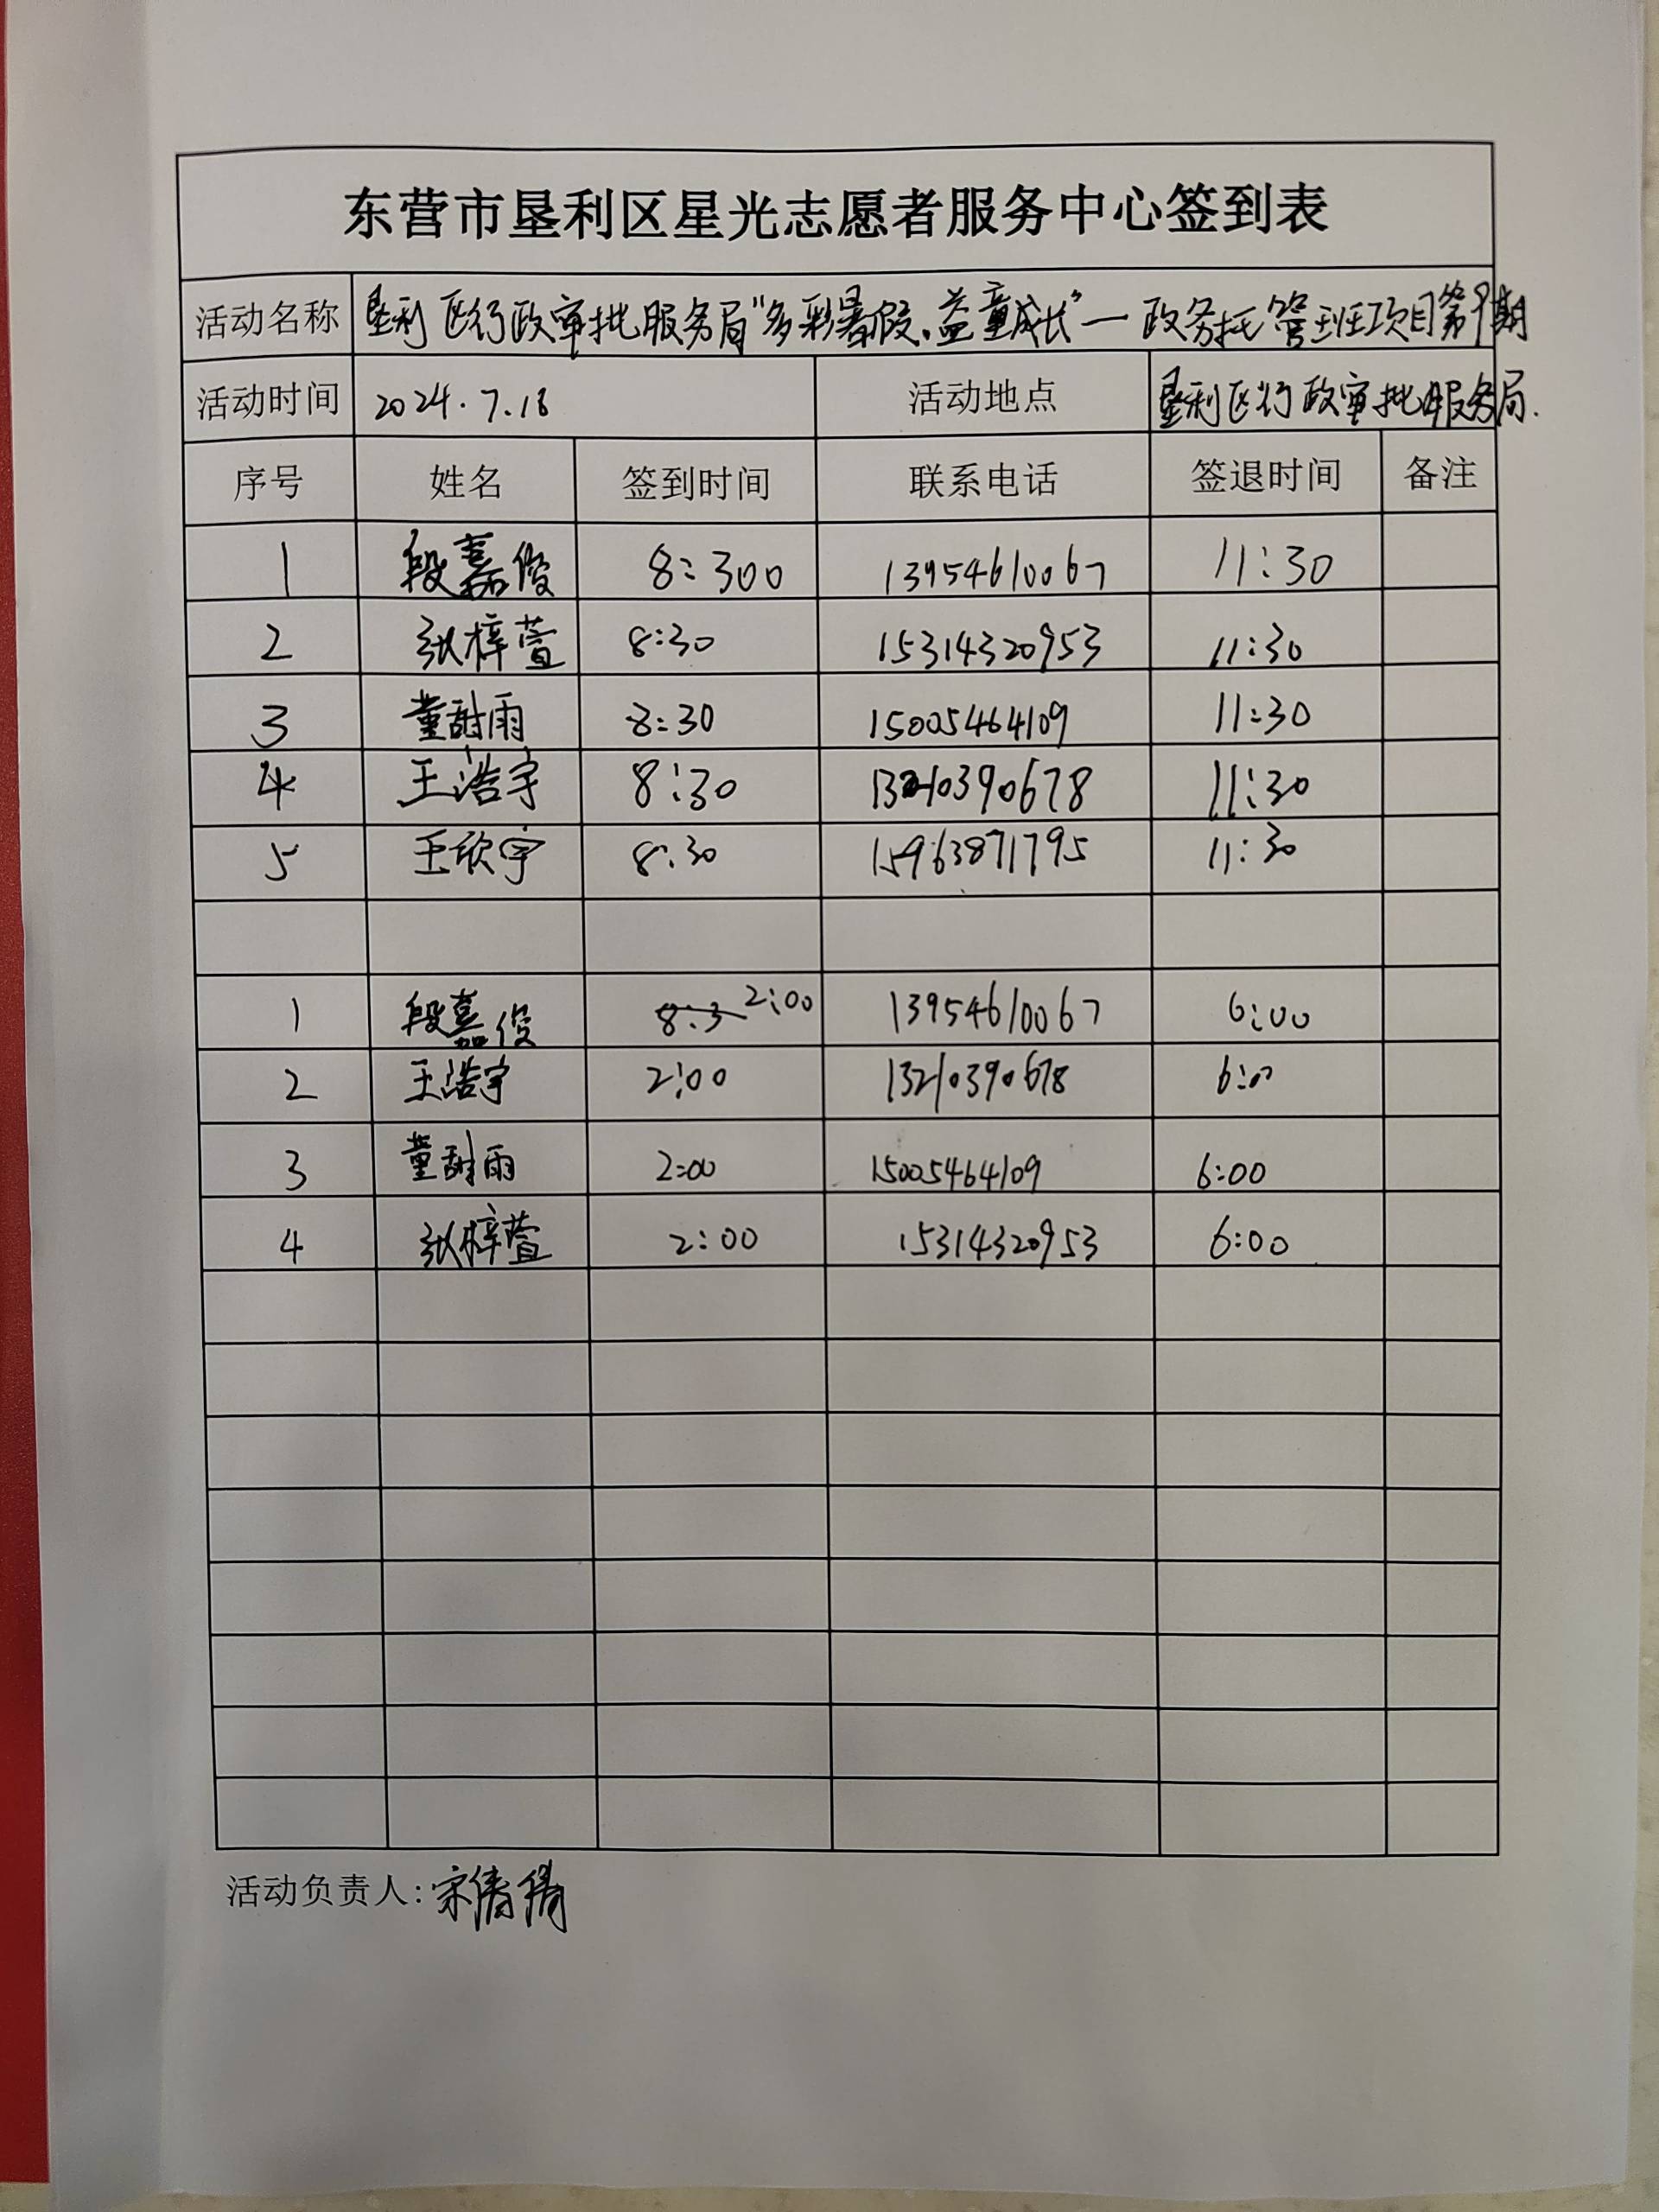 东营市垦利区星光志愿者服务中心签到表
活动名称 垦利区行政审批服务局"多彩暑假、益童成长"一政务托管班项目第9期
活动时间 2024.7.18 活动地点 垦利区行政审批服务局.
序号 姓名 签到时间 联系电话 签退时间 备注
1 段嘉俊 8:300 13954610067 11:30
2 张梓萱 8:30 15314320953 11:30
3 董甜雨 8:30 15005464109 11:30
4 王浩宇 8:30 13210390678 11:30
5 王欣宇 8:30 15963871795 11:30
1 段嘉俊 8:3 2:00 13954610067 6:00
2 王浩宇 2:00 13210390678 6:00
3 董甜雨 2:00 15005464109 6:00
4 张梓萱 2:00 15314320953 6:00
活动负责人:宋倩倩